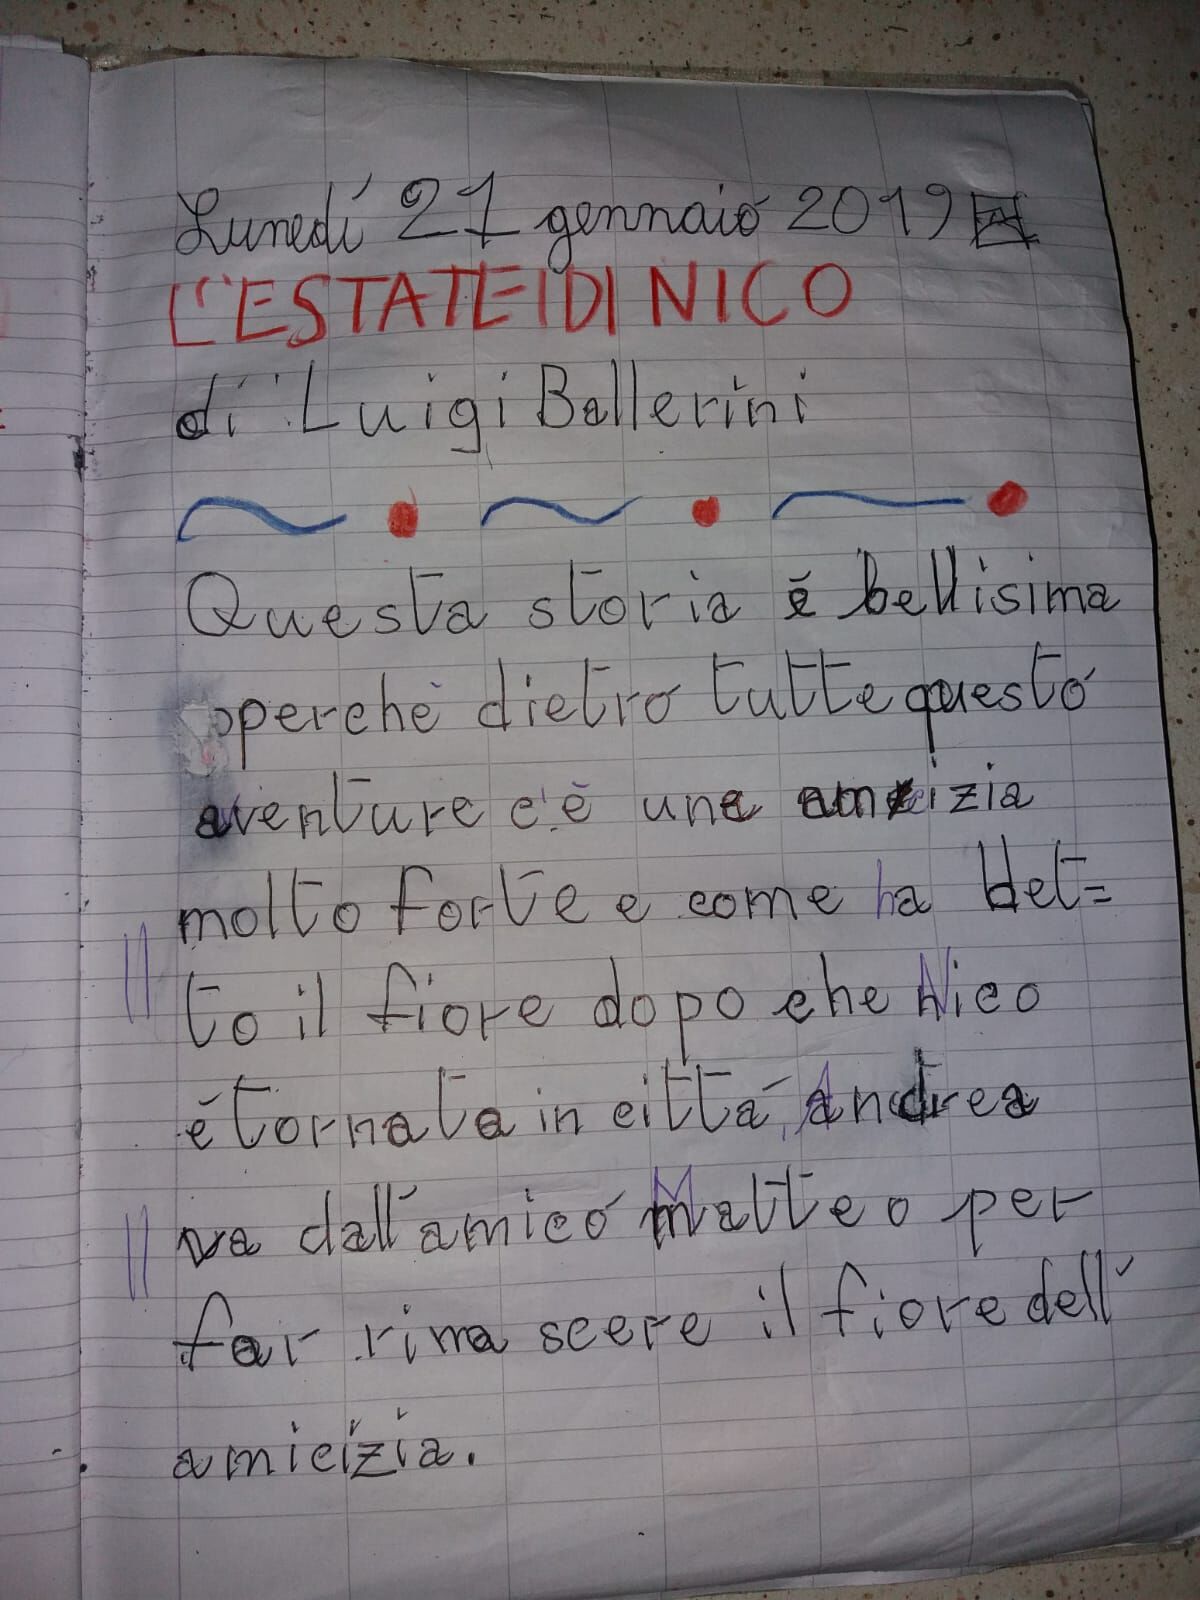 Lunedí 21 gennaio 2019
L'ESTATE DI NICO
di Luigi Ballerini
Questa storia è bellisima
perchè dietro tutte questo
aventure c'è una amicizia
molto forte e come ha det=
to il fiore dopo che Nico
é tornata in cittá, Andrea
va dall'amico Matteo per
far rina scere il fiore dell'
amicizia.